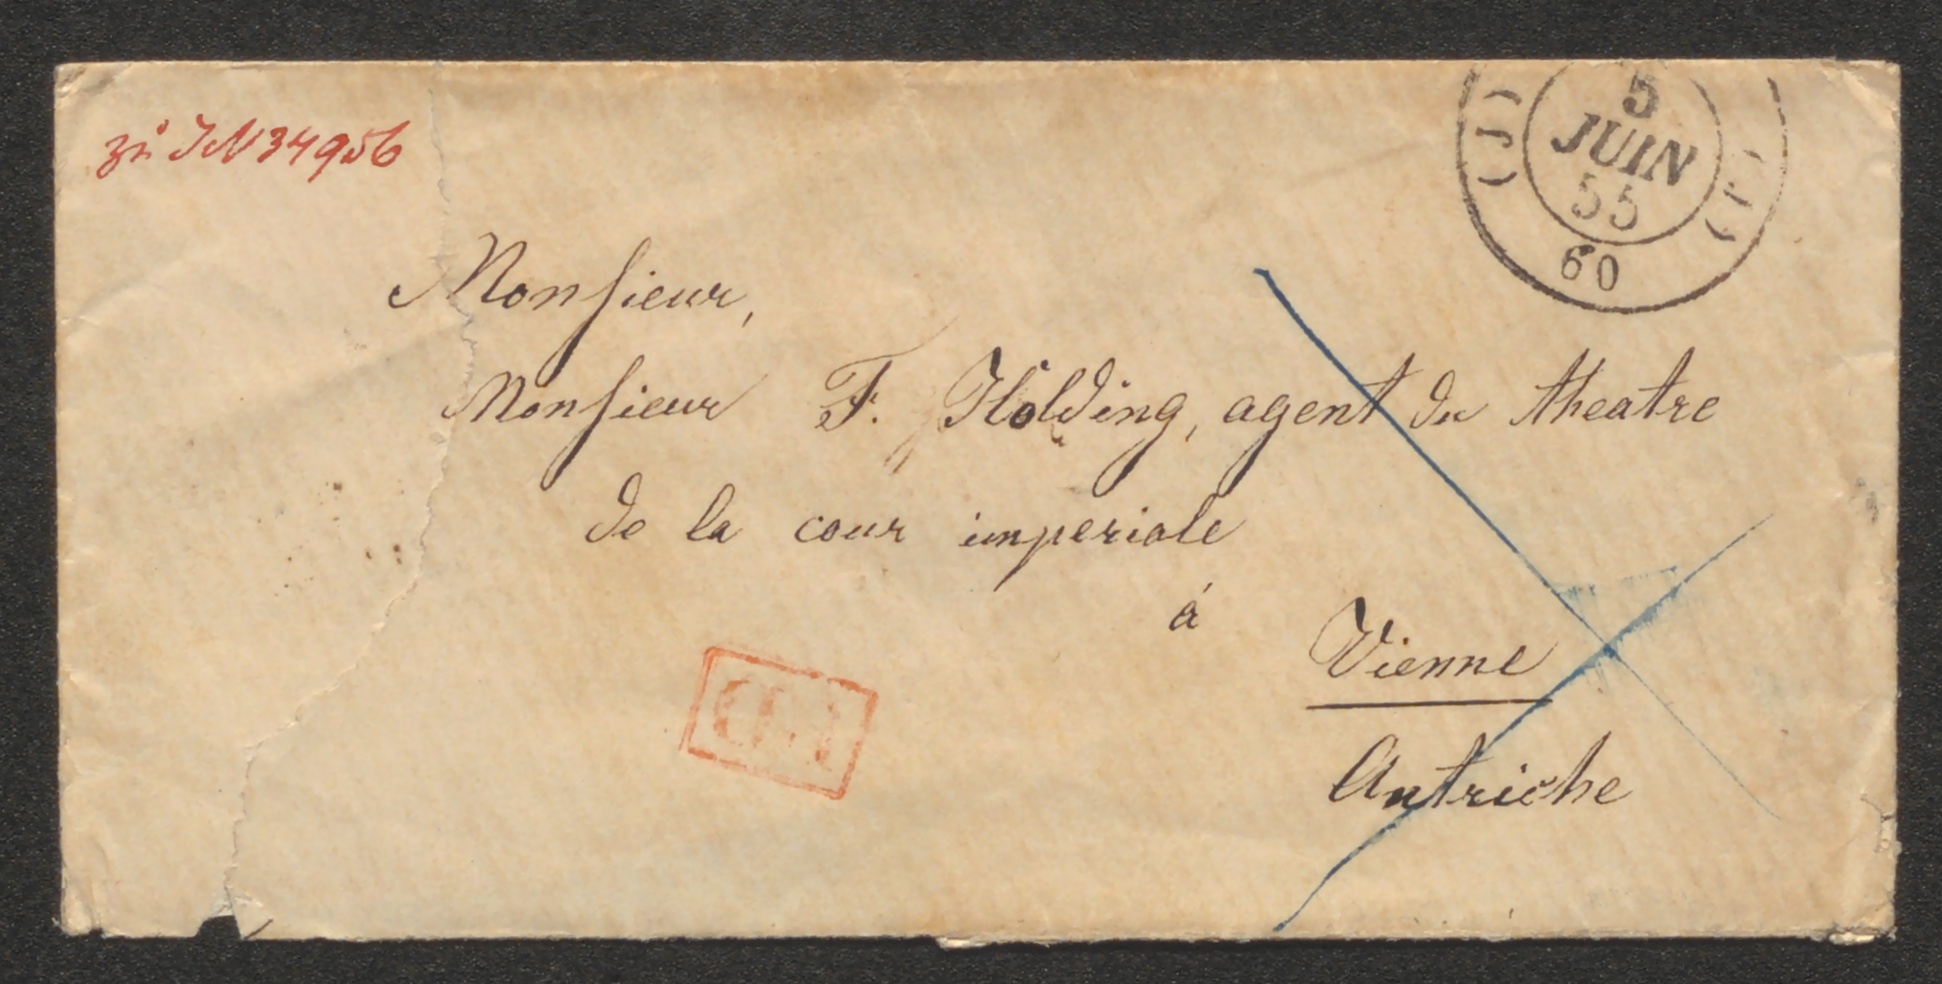 zu IN 34956
(J) 5 (J)
JUIN
55
60
Monsieur,
Monsieur F. Holding, agent du theatre
de la cour imperiale
á
Vienne
Autriche